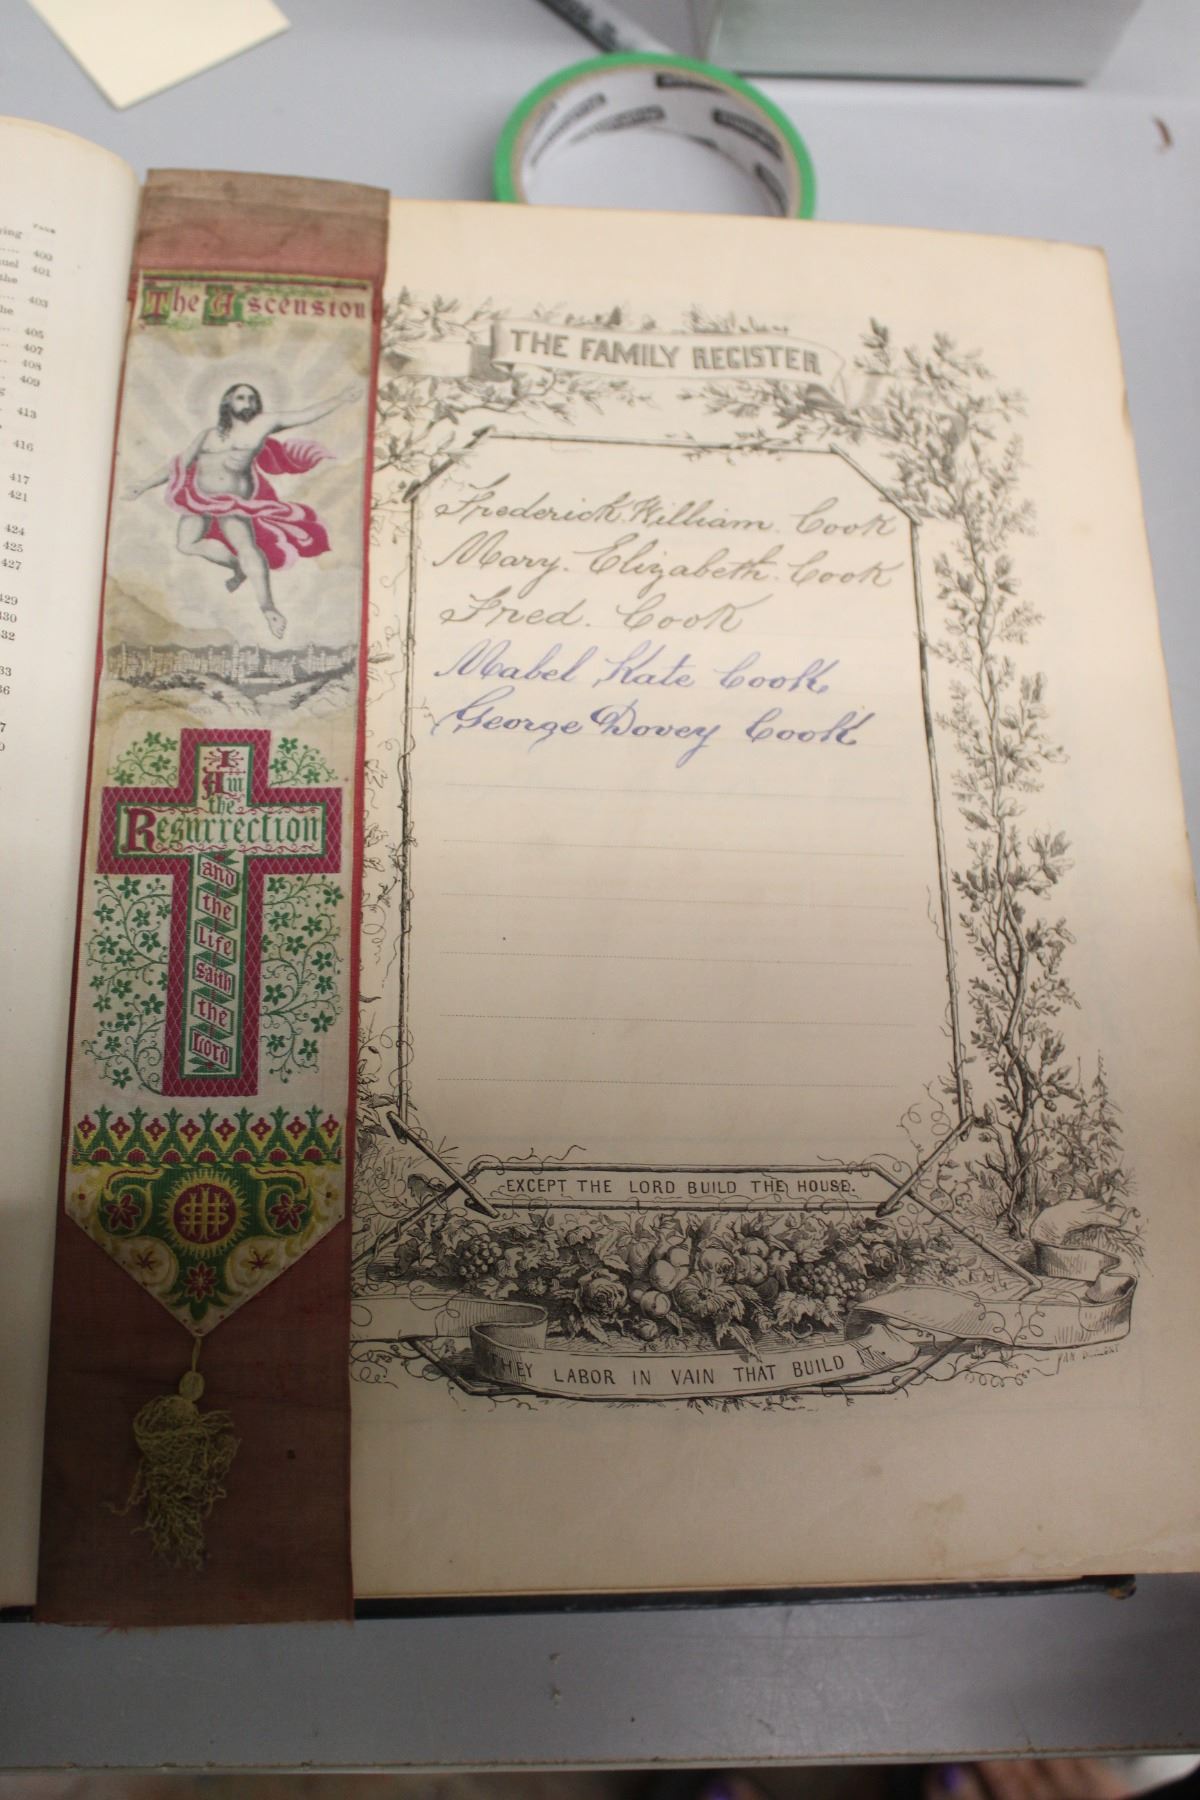 PAGE
400
401
the
403
405
407
408
409
413
416
417
421
424
425
427
429
430
The Ascension
I
Am
the
Resurrection
and
the
Life
saith
the
Lord
IHS
THE FAMILY REGISTER
Frederick. William. Cook
Mary. Elizabeth. Cook
Fred. Cook
Mabel Kate Cook.
George Dovey Cook
EXCEPT THE LORD BUILD THE HOUSE.
THEY LABOR IN VAIN THAT BUILD IT.